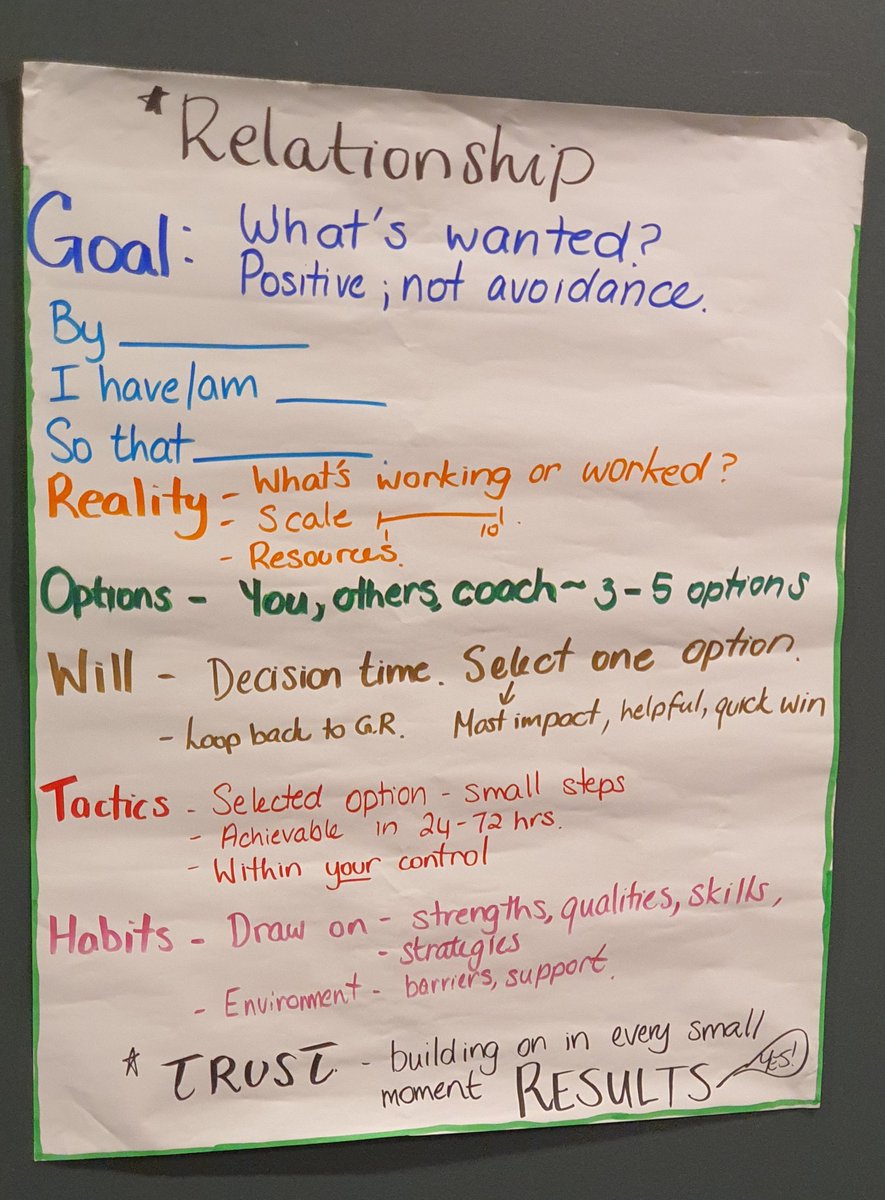 *Relationship
Goal: What's wanted?
Positive; not avoidance.
By ________
I have/am ____
So that ________.
Reality - What's working or worked?
- Scale 1 10.
- Resources.
Options - You, others, coach ~ 3-5 options
Will - Decision time. Select one option.
- Loop back to G.R. Most impact, helpful, quick win
Tactics - Selected option - small steps
- Achievable in 24-72 hrs.
- Within your control
Habits - Draw on - strengths, qualities, skills,
- strategies
- Enviroment - barriers, support.
* TRUST - building on in every small
moment RESULTS YES!